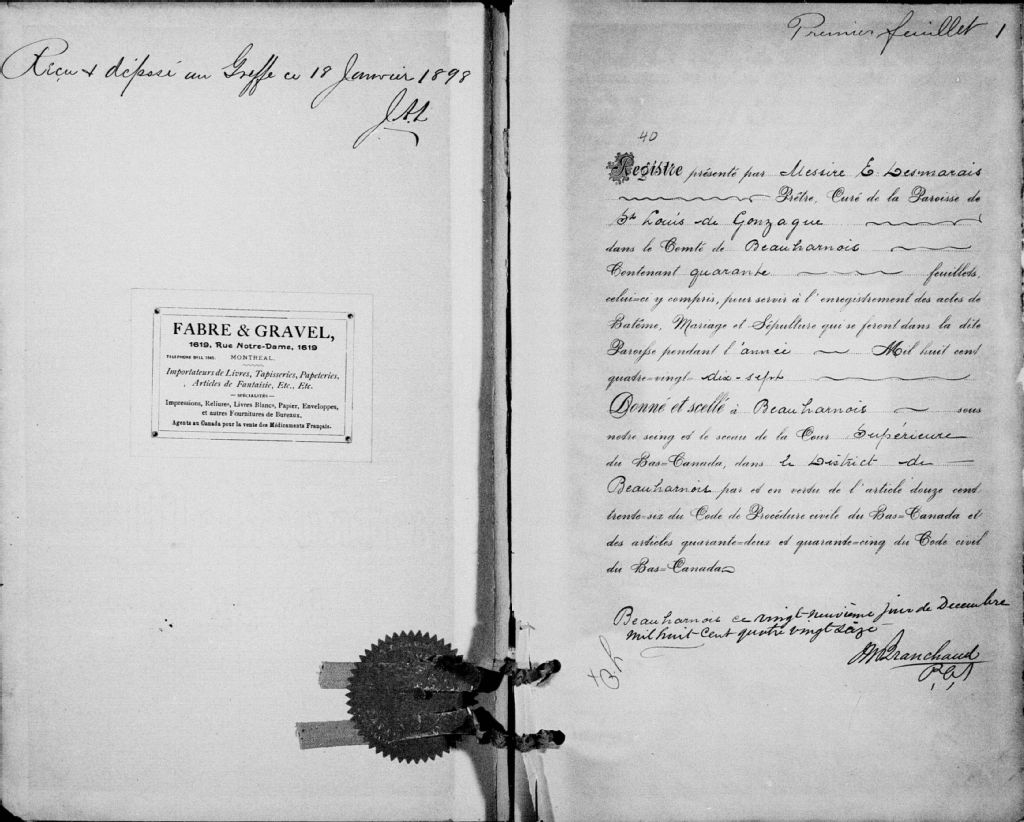 Reçu & déposé au Greffe ce 18 Janvier 1898
FABRE & GRAVEL,
1619, Rue Notre-Dame, 1619
TELEPHONE BELL
MONTREAL.
Importateurs de Livres, Tapisseries, Papeteries,
Articles de Fantaisie, Etc., Etc.
— SPÉCIALITÉS —
Impressions, Reliures, Livres Blancs, Papier, Enveloppes,
et autres Fournitures de Bureaux.
Agents au Canada pour la vente des Médicaments Français.
Premier feuillet 1
40
Registre présenté par Messire E. Desmarais
Prêtre, Curé de la Paroisse de
St Louis de Gonzague
dans le Comté de Beauharnois
Contenant quarante feuillets,
celui-ci y compris, pour servir à l'enregistrement des actes de
Batême, Mariage et Sépulture qui se feront dans la dite
Paroisse pendant l'année Mil huit cent
quatre-vingt-dix-sept
Donné et scellé à Beauharnois sous
notre seing et le sceau de la Cour Supérieure
du Bas-Canada, dans le District de
Beauharnois par et en vertu de l'article douze cent
trente-six du Code de Procédure civile du Bas-Canada et
des articles quarante-deux et quarante-cinq du Code civil
du Bas-Canada
Beauharnois ce vingt-neuvième jour de Decembre
mil huit cent quatre vingt Seize
Branchaud